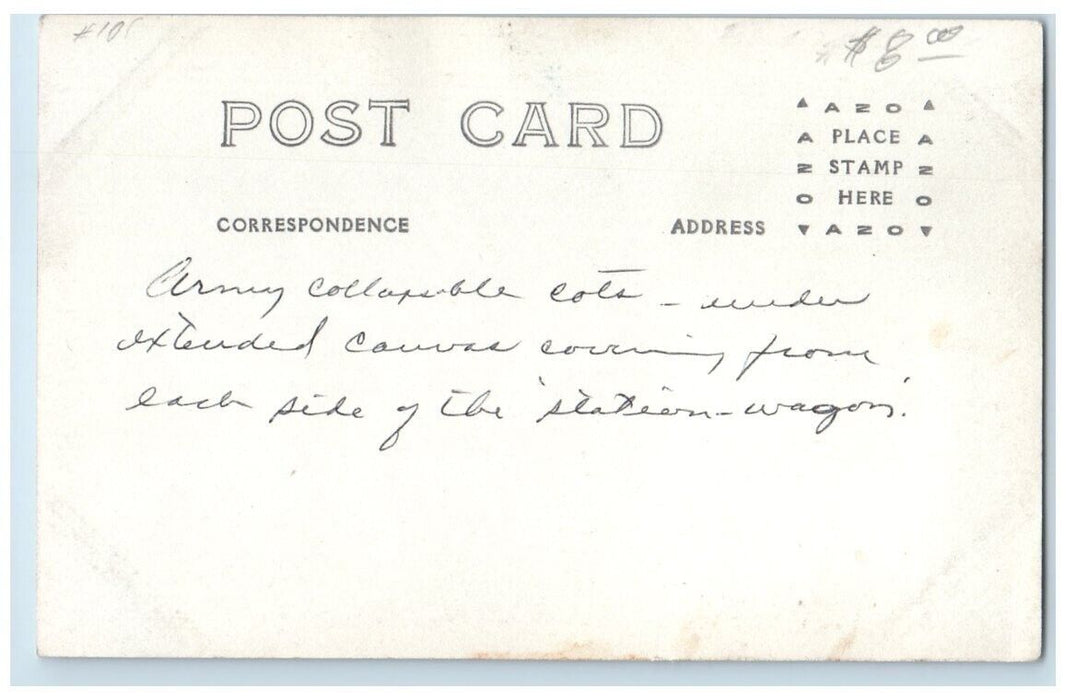 #101
$8.00
POST CARD
▲ AZO ▲
A PLACE A
Z STAMP Z
O HERE O
▼ AZO ▼
CORRESPONDENCE
ADDRESS
Army collapsible cots - under
extended canvas covering from
each side of the 'station-wagon.'